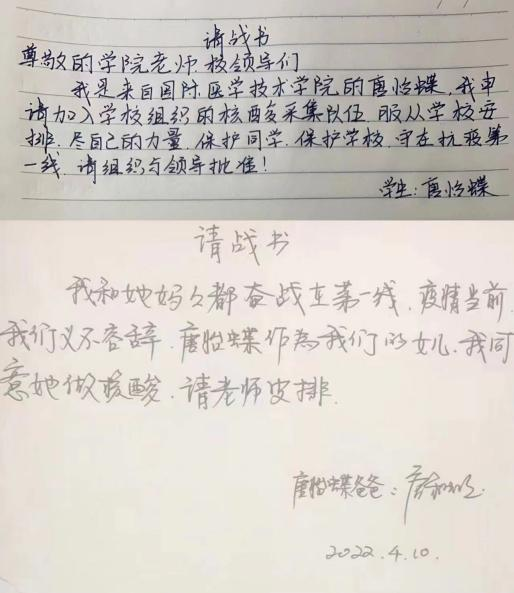 请战书
尊敬的学院老师.校领导们
我是来自国际医学技术学院的唐怡蝶,我申
请加入学校组织的核酸采集队伍.服从学校安
排.尽自己的力量.保护同学.保护学校.守在抗疫第
一线.请组织与领导批准!
学生:唐怡蝶
请战书
我和她妈々都奋战在第一线.疫情当前.
我们义不容辞.唐怡蝶作为我们的女儿.我同
意她做核酸.请老师安排.
唐怡蝶爸爸:
2022.4.10.